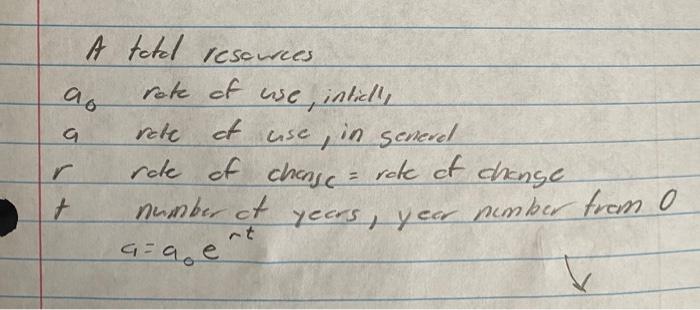 A total resources
a₀ rate of use, intially
a rate of use, in general
r rate of change = rate of change
t number of years, year number from 0
a = a₀ e^rt